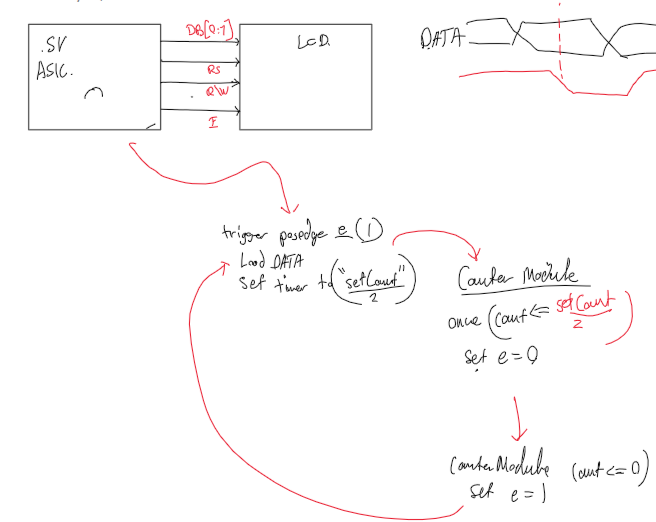 .SV
ASIC.
DB[0:7]
RS
R\W
E
LCD.
DATA
trigger posedge e (1)
Load DATA
set timer to ("setCount"
2)
Counter Module
once (Count <= setCount
2)
set e=0
Counter Module (count <= 0)
set e=1